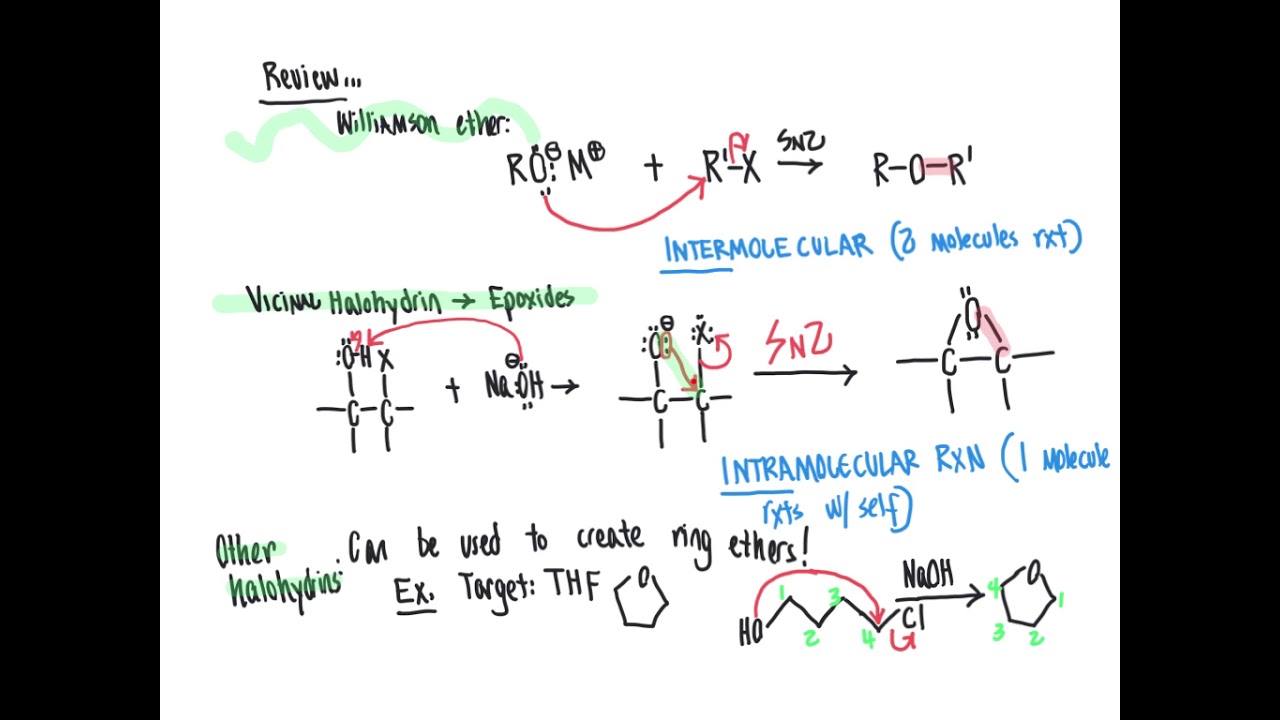 Review...
Williamson ether:
RO:⊖ M⊕ + R'–X SN2 → R–O–R'
INTERMOLECULAR (2 molecules rxt)
VICINAL Halohydrin → Epoxides
:Ö–H X + Na⊖:ÖH → :Ö:⊖ :X: SN2 → Ö
C C C C C C
INTRAMOLECULAR RXN (1 molecule
rxts w/ self)
Other halohydrins: Can be used to create ring ethers!
Ex. Target: THF O HO 1 2 3 4 Cl NaOH → O 1 2 3 4